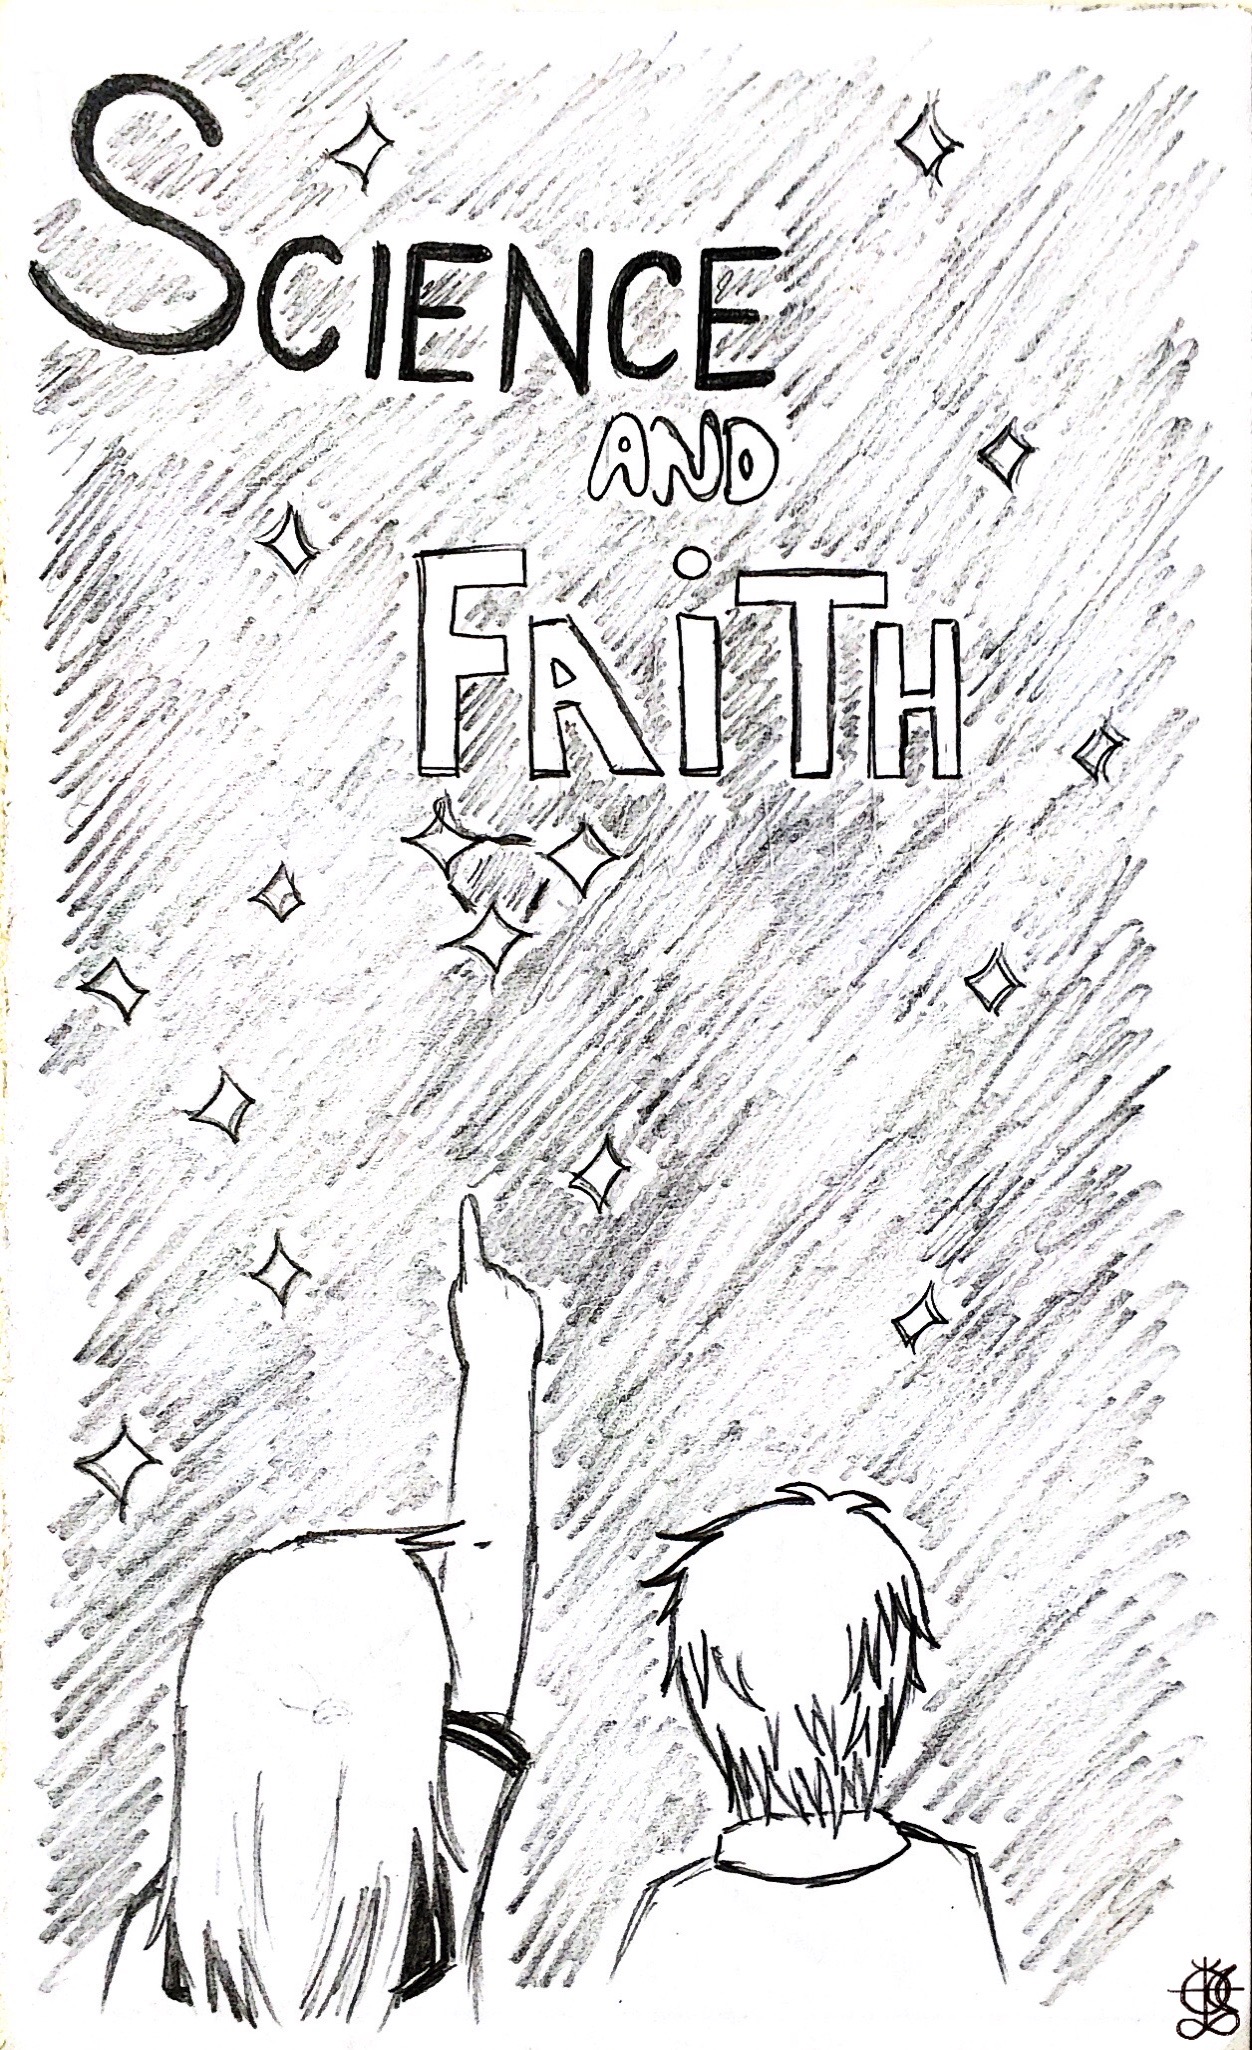 SCIENCE
AND
FAiTH